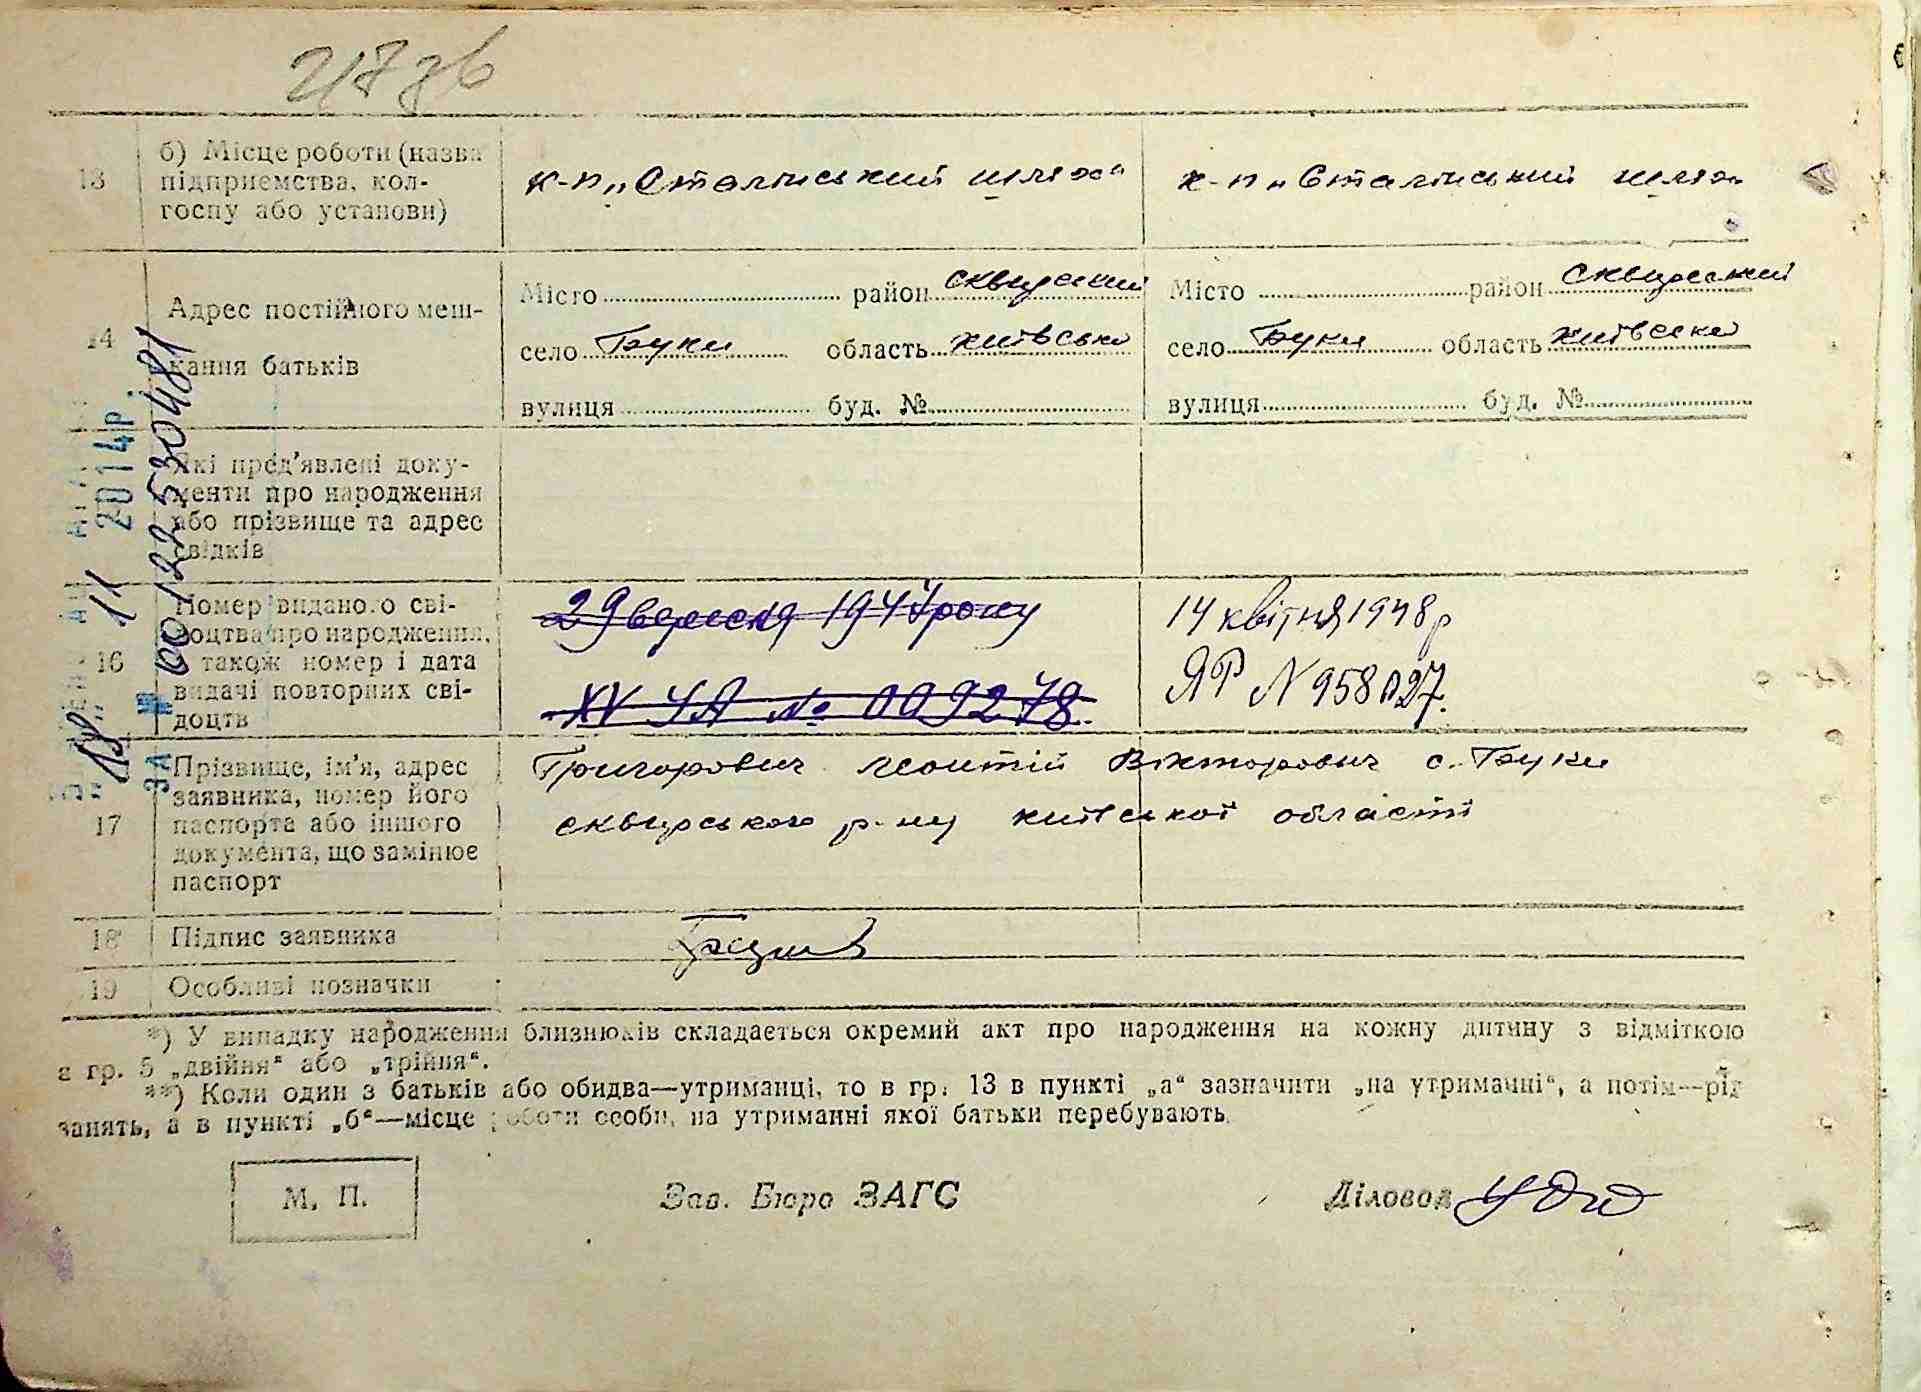 217 зв
13
б) Місце роботи (назва
підприємства, кол-
госпу або установи)
к-п „Сталінський шлях“
к-п „Сталінський шлях
14
Адрес постійного меш-
кання батьків
Місто район Сквирський
село Буки область Київська
вулиця буд. №
Місто район Сквирський
село Буки область Київська
вулиця буд. №
Які пред’явлені доку-
менти про народження
або прізвище та адрес
свідків
16
Номер виданого сві-
доцтва про народження,
а також номер і дата
видачі повторних сві-
доцтв
29 вересня 1947 року
XV УА № 009278.
14 квітня 1948 р
ЯР N 958027.
17
Прізвище, ім’я, адрес
заявника, номер його
паспорта або іншого
документа, що замінює
паспорт
Григорович Леонтій Вікторович с. Буки
Сквирського р-ну Київської області
18
Підпис заявника
19
Особливі позначки
*) У випадку народження близнюків складається окремий акт про народження на кожну дитину з відміткою
в гр. 5 „двійня“ або „трійня“.
**) Коли один з батьків або обидва—утриманці, то в гр. 13 в пункті „а“ зазначити „на утриманні“, а потім—рід
занять, а в пункті „б“—місце роботи особи, на утриманні якої батьки перебувають.
М. П.
Зав. Бюро ЗАГС
Діловод
18 11 2014р.
ЗА № 00122530481